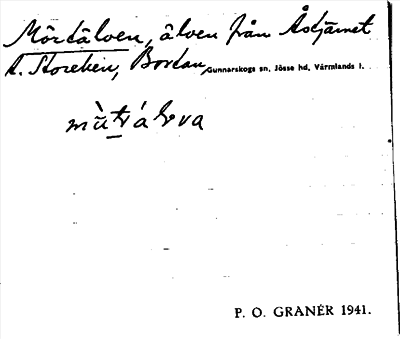 Mördälven, älven från Åstjärnet
t. Storeken, Bortan, Gunnarskogs sn, Jösse hd, Värmlands l.
P. O. GRANÉR 1941.